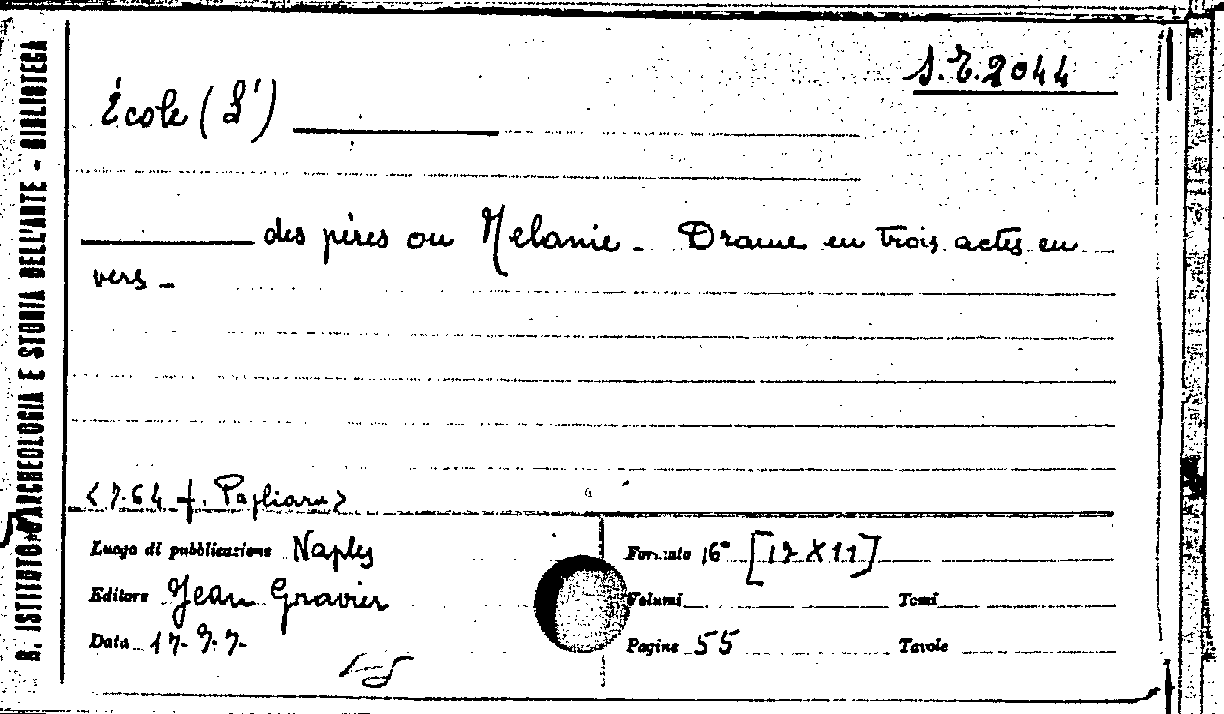 S.T. 2044
École (L')
des pères ou Melanie - Drame en trois actes en
vers -
R. ISTITUTO D'ARCHEOLOGIA E STORIA DELL'ARTE - BIBLIOTECA
Luogo di pubblicazione Naples
Formato 16°
Editore Jean Gravier
Volumi
Tomi
Data
Pagine 55
Tavole